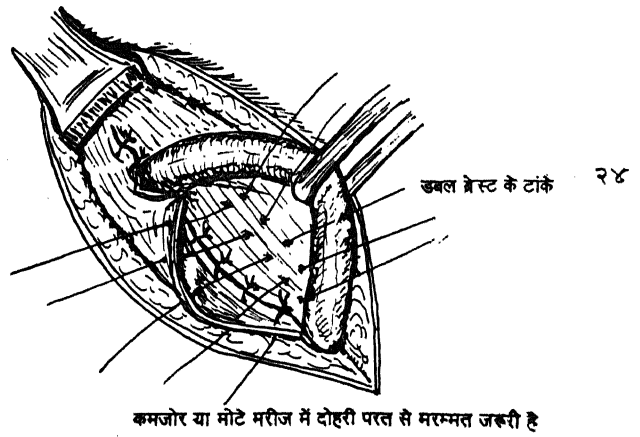 डबल ब्रेस्ट के टांके
२४
कमजोर या मोटे मरीज में दोहरी परत से मरम्मत जरूरी है